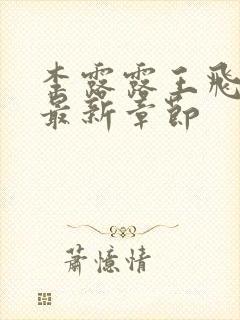 李露露王飛
最新章節
蕭憶情